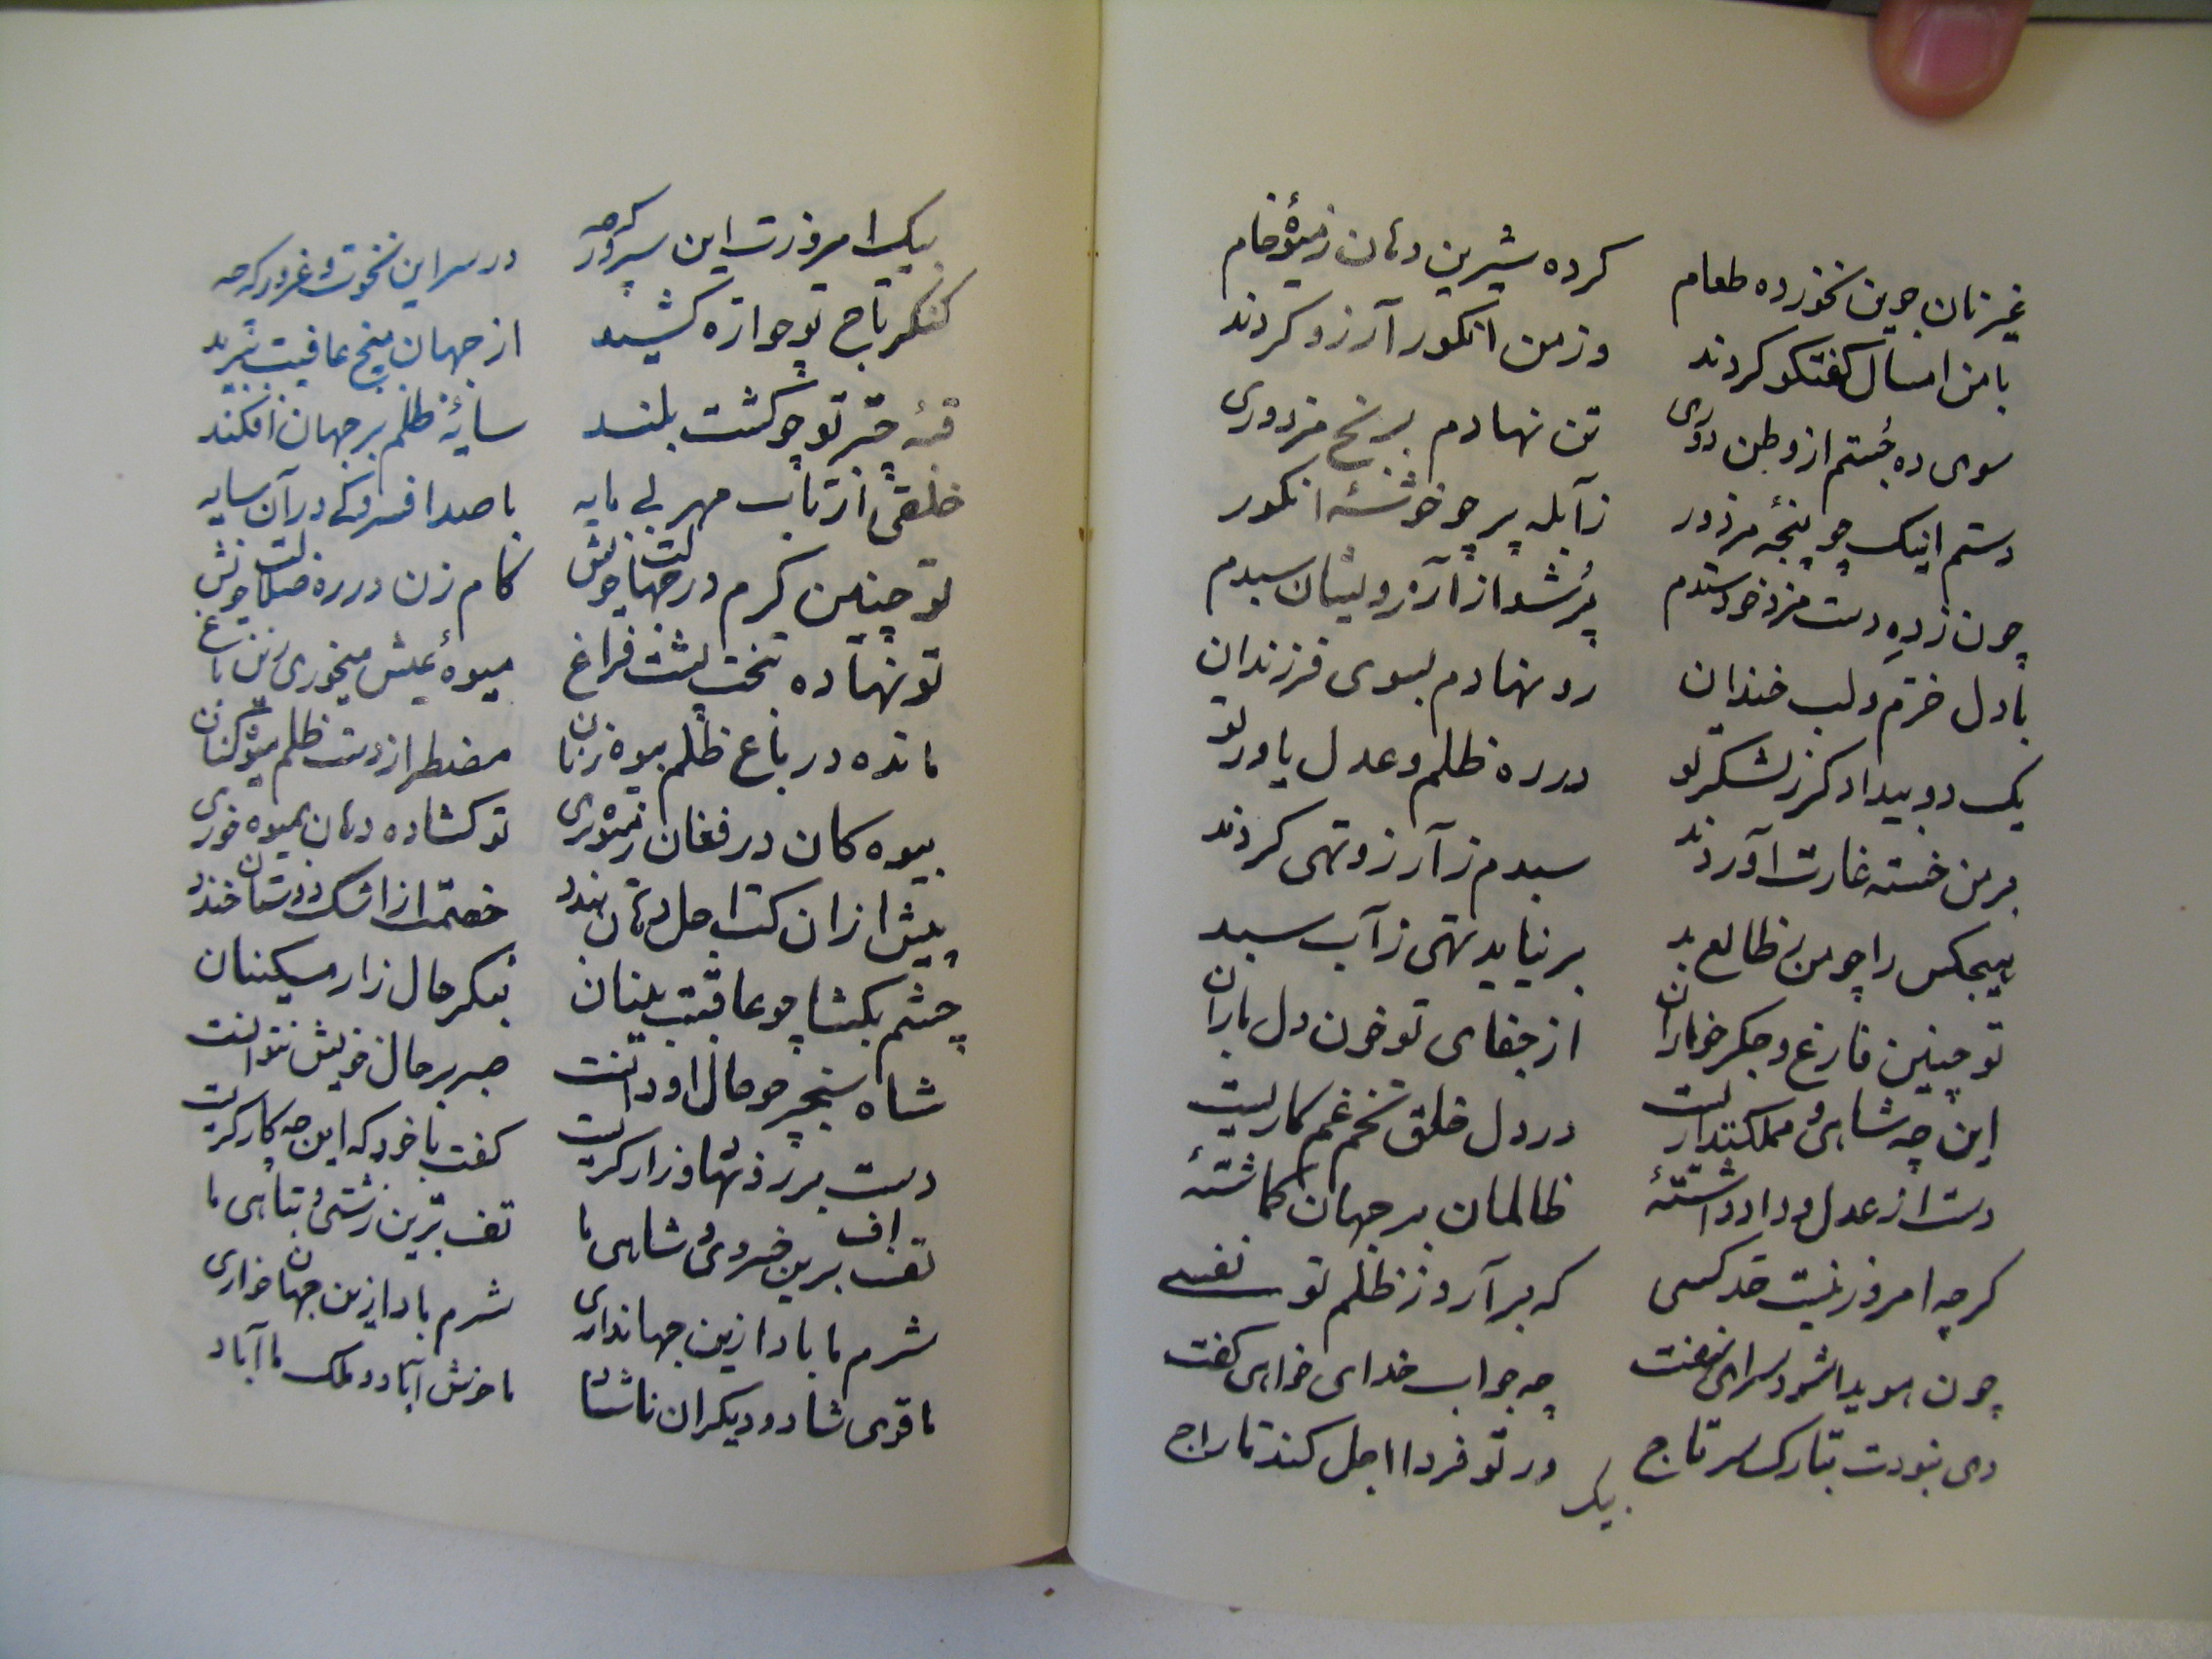 غیر نان جوین نخورده طعام کرده شیرین دهان ز میوهٔ خام
با من امسال گفتگو کردند وز من انگور آرزو کردند
سوی ده جُستم از وطن دوری تن نهادم برنج مزدوری
دستم اینک چو پنجهٔ مزدور ز آبله پر چو خوشهٔ انگور
چون ز دِه دست مزد خود ستدم پُر شد از آرزویشان سبدم
با دل خرّم و لب خندان رو نهادم بسوی فرزندان
یک دو بیدادگر ز لشکر تو در ره ظلم و عدل یاور تو
بر من خسته غارت آوردند سبدم ز آرزو تهی کردند
هیچکس را چو من ز طالع بد بر نیاید تهی ز آب سبد
تو چنین فارغ و جگرخواران از جفای تو خون دل باران
این چه شاهی و مملکتداریست در دل خلق تخم غم کاریست
دست از عدل و داد داشتهٔ ظالمان بر جهان گماشتهٔ
گرچه امروز نیست حد کسی که برآرد ز ظلم تو نفسی
چون هویدا شود سرای نهفت چه جواب خدای خواهی گفت
دی نبودت بتارک سر تاج ور تو فردا اجل کند تاراج
بیک
بیک امروزت این سرور که چه در سر این نخوت و غرور که چه
کنگر تاج تو چو اره کشید از جهان بیخ عافیت ببرید
قبهٔ چتر تو چو گشت بلند سایهٔ ظلم بر جهان افکند
خلقی از تاب مهر بی مایه با صد افسردگی در آن سایه
تو چنین گرم در جهالت خویش گام زن در ره ضلالت خویش
تو نهاده بتخت پشت فراغ میوهٔ عیش میخوری زین باغ
مانده در باغ ظلم بیوه زنان مضطر از دست ظلم میوه کنان
بیوه گان در فغان ز میوه بری تو گشاده دهان بمیوه خوری
پیش از ان کت اجل دهان بندد خصمت از اشک دوستان خندد
چشم بگشا چو عاقبت بینان بنگر حال زار مسکینان
شاه سنجر چو حال او دانست صبر بر حال خویش نتوانست
دست بر رو نهاد و زار گریست گفت با خود که این چه کار گریست
تف اف برین خسروی و شاهی ما تف برین زشتی و تباهی ما
شرم ما بادا ازین جهانداری شرم بادا ازین جهان خواری
ما قوی شاد و دیگران ناشاد ما خوش آباد و ملک ما آباد